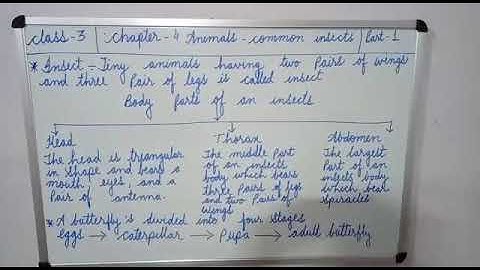 class-3 chapter-4 Animals - common insects Part-1
* Insect - Tiny animals having two Pairs of wings
and three Pair of legs is called insect
Body Parts of an insects
Head
The head is triangular
in shape and bears a
mouth, eyes, and a
Pair of antenna.
Thorax
The middle Part
of an insects
body which bears
three Pairs of legs
and two Pairs of
wings
Abdomen
The largest
Part of an
insects body
which bear
spiracles
* A butterfly is divided into four stages
eggs → caterpillar → Pupa → adult butterfly